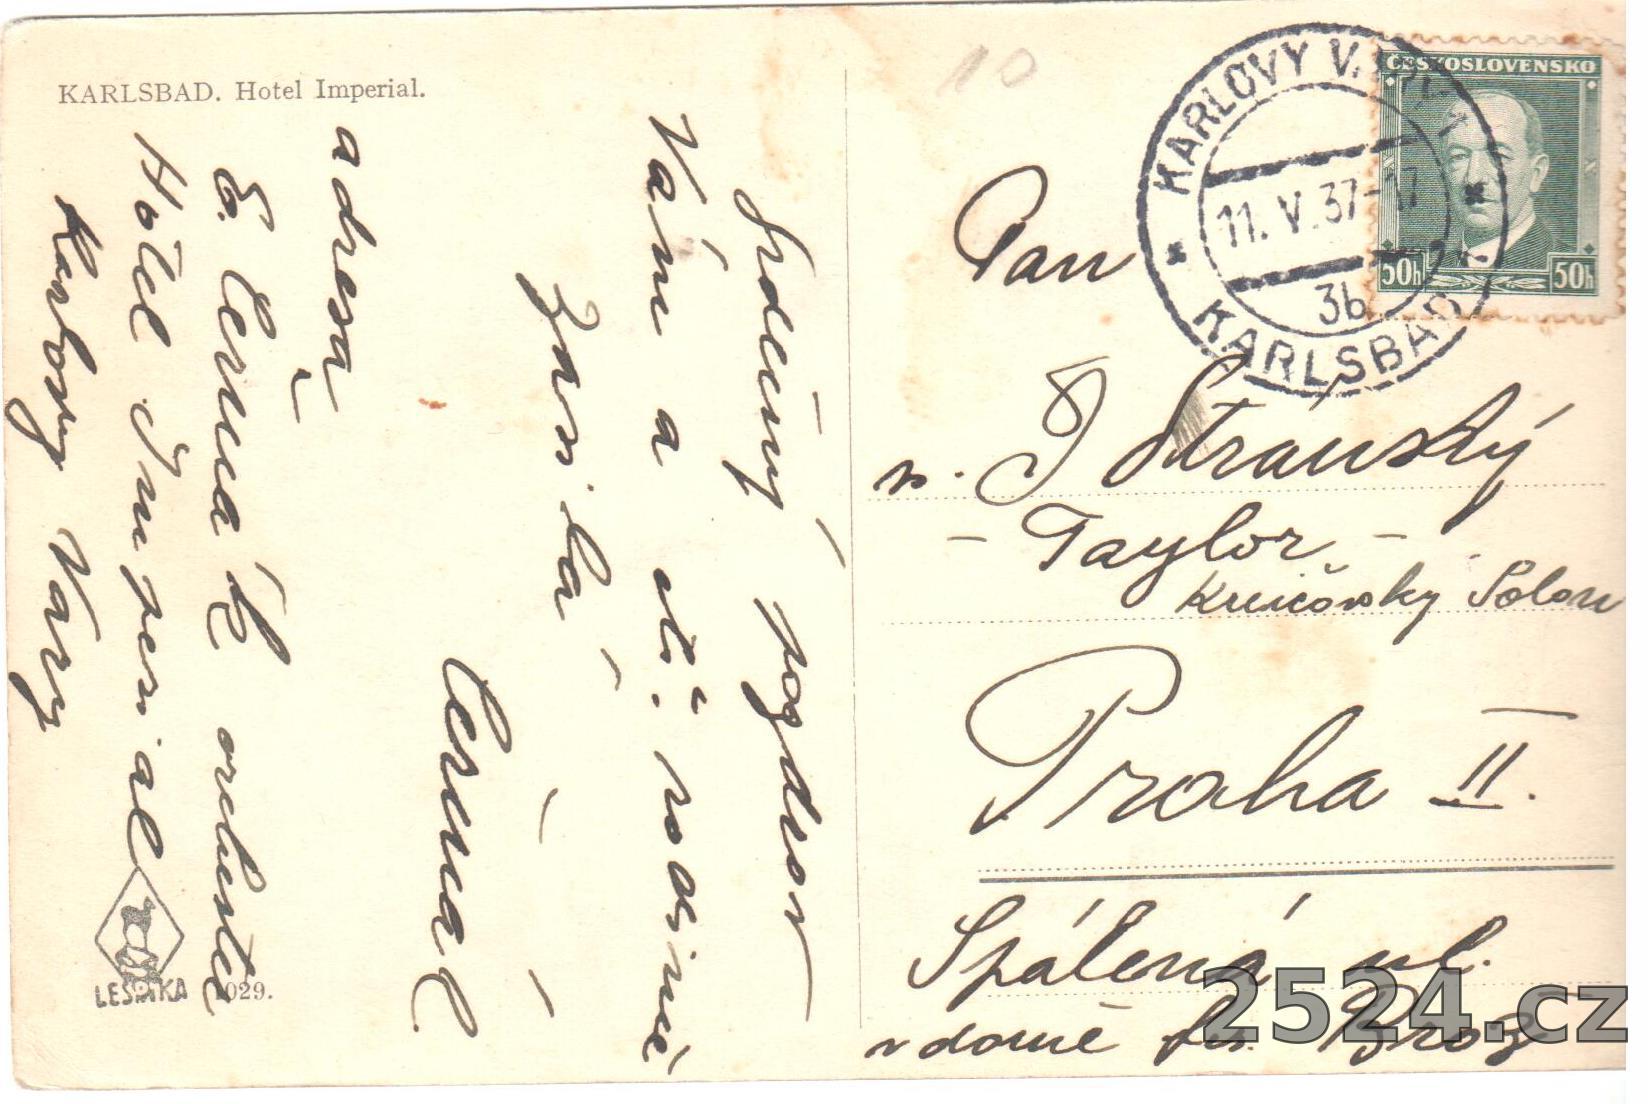 KARLSBAD. Hotel Imperial.
Srdečný pozdrav
Vám a ct. rodině
zasílá
Čermák
adresa
E. Čermák orchestr
Hotel Imperial
Karlovy Vary
LESMKA 1029.
10
KARLOVY VARY 1
11. V. 37-17
3b
KARLSBAD
ČESKOSLOVENSKO
50h 50h
Pan
J Stránský
- Taylor -
Krejčovský Salon
Praha II.
Spálená ul.
v domě fy. Brož
2524.cz